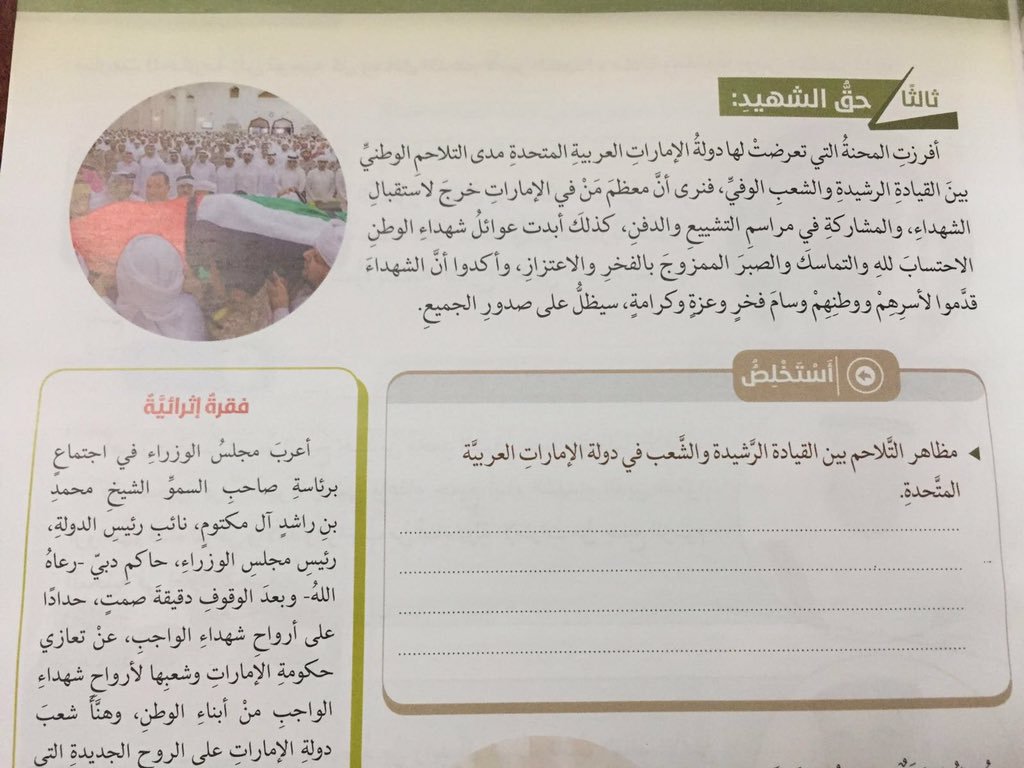 ثالثًا
حقُّ الشهيدِ:
أفرزتِ المحنةُ التي تعرضتْ لها دولةُ الإماراتِ العربيةِ المتحدةِ مدى التلاحمِ الوطنيِّ
بينَ القيادةِ الرشيدةِ والشعبِ الوفيِّ، فنرى أنَّ معظمَ مَنْ في الإماراتِ خرجَ لاستقبالِ
الشهداءِ، والمشاركةِ في مراسمِ التشييعِ والدفنِ، كذلكَ أبدت عوائلُ شهداءِ الوطنِ
الاحتسابَ للهِ والتماسكَ والصبرَ الممزوجَ بالفخرِ والاعتزازِ، وأكدوا أنَّ الشهداءَ
قدَّموا لأسرِهِمْ ووطنِهِمْ وسامَ فخرٍ وعزةٍ وكرامةٍ، سيظلُّ على صدورِ الجميعِ.
أَسْتَخْلِصُ
مظاهر التَّلاحم بين القيادة الرَّشيدة والشَّعب في دولة الإماراتِ العربيَّة
المتَّحدةِ.
فقرةٌ إثرائيَّةٌ
أعربَ مجلسُ الوزراءِ في اجتماعٍ
برئاسةِ صاحبِ السموِّ الشيخِ محمدِ
بنِ راشدٍ آل مكتومٍ، نائبِ رئيسِ الدولةِ،
رئيسِ مجلسِ الوزراءِ، حاكمِ دبيّ -رعاهُ
اللهُ- وبعدَ الوقوفِ دقيقةَ صمتٍ، حدادًا
على أرواحِ شهداءِ الواجبِ، عنْ تعازي
حكومةِ الإماراتِ وشعبِها لأرواحِ شهداءِ
الواجبِ منْ أبناءِ الوطنِ، وهنَّأَ شعبَ
دولةِ الإماراتِ على الروحِ الجديدةِ التي